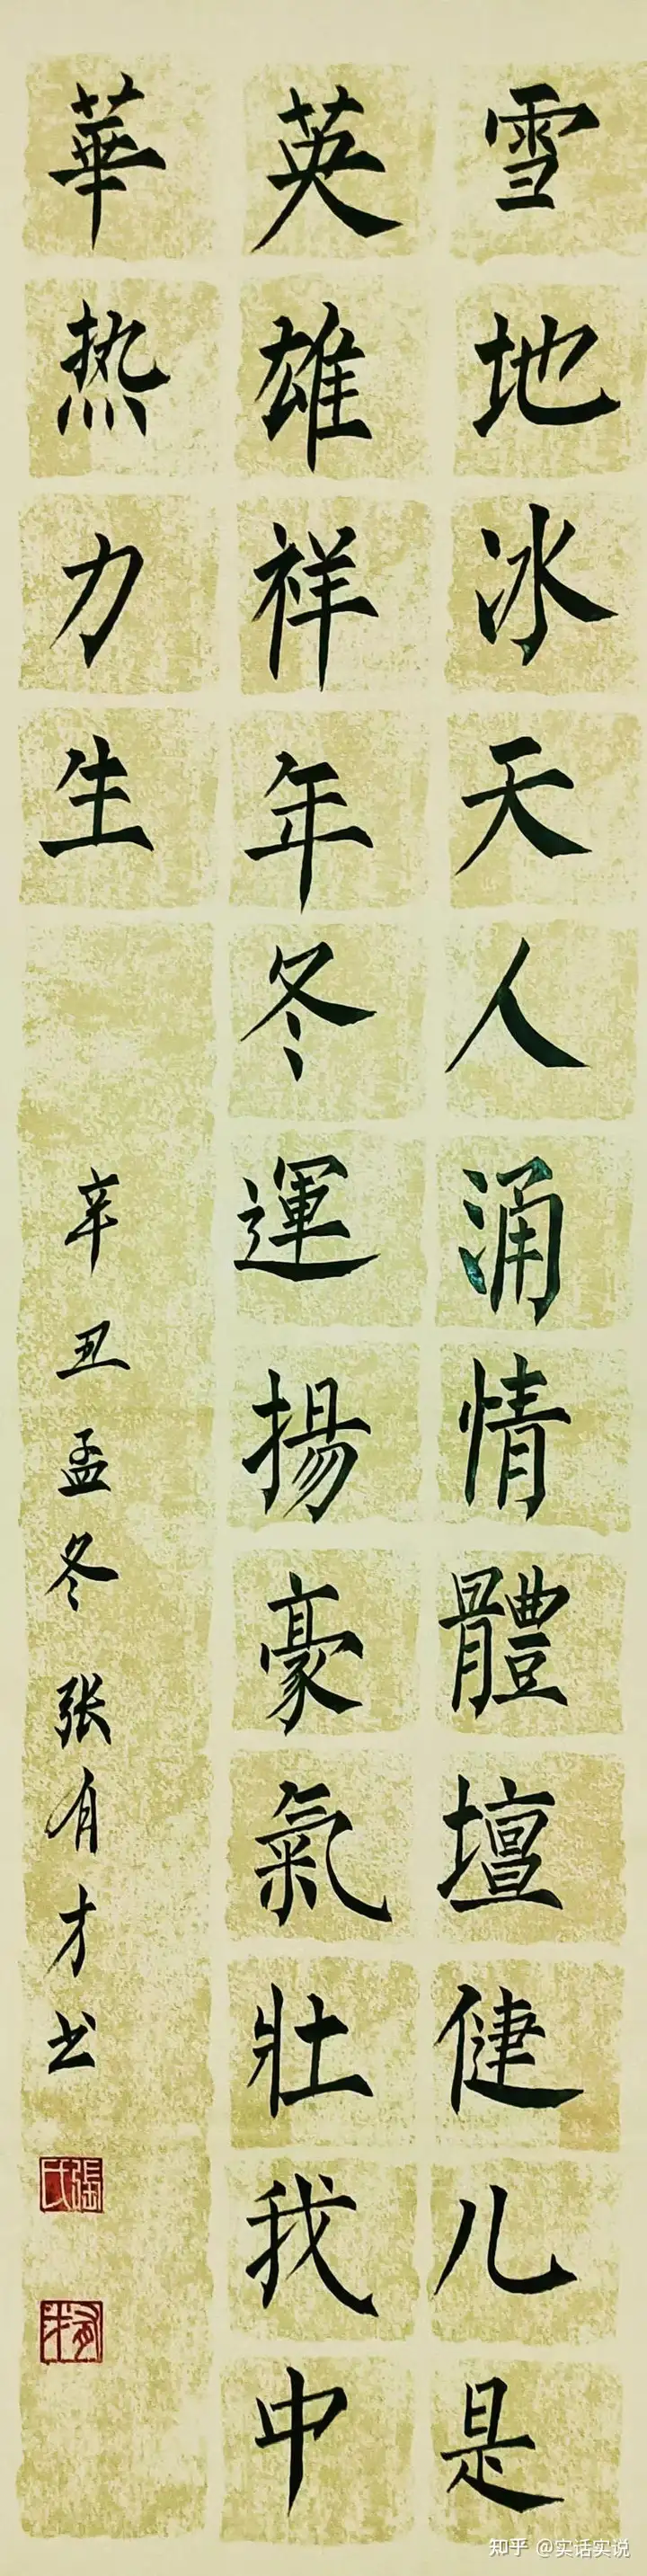 雪地冰天人涌情體壇健儿是
英雄祥年冬運揚豪氣壯我中
華热力生
辛丑孟冬张有才书
張氏
有才
知乎 @实话实说